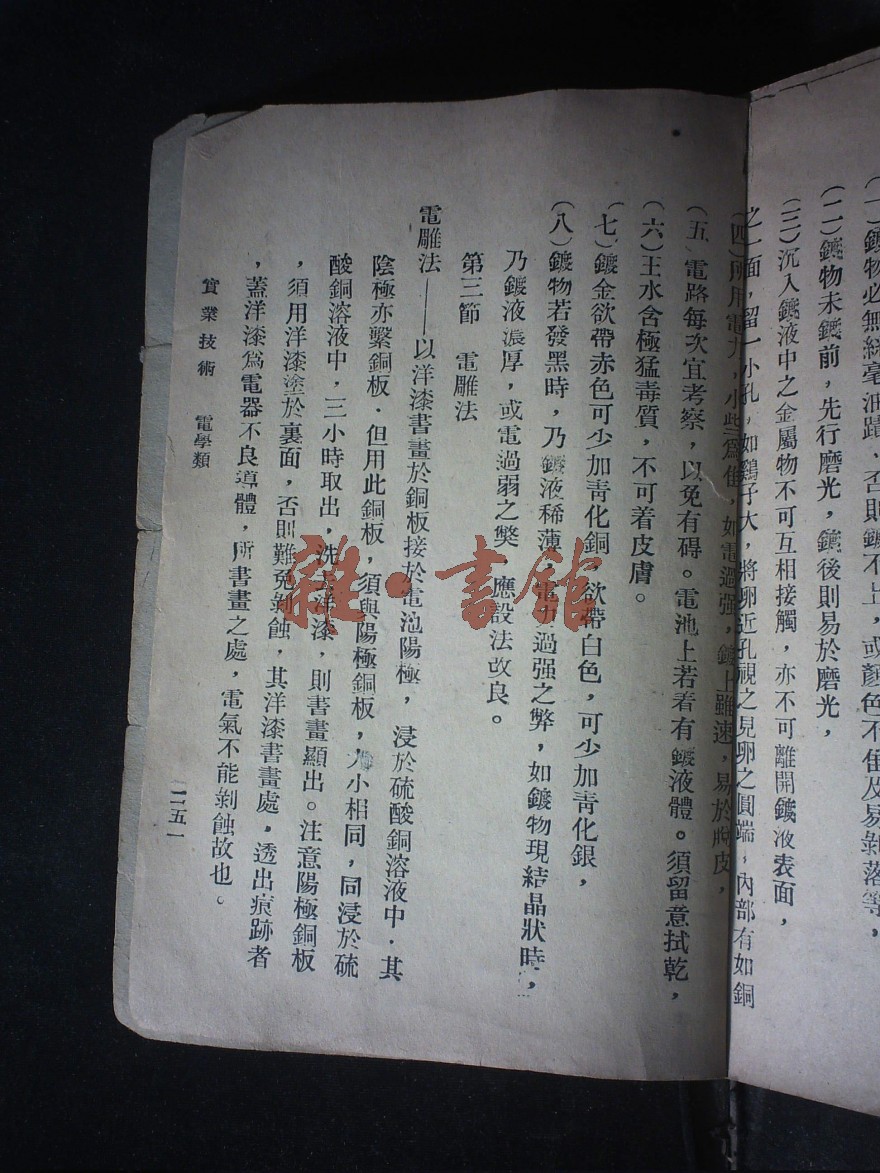 (一)鍍物必無絲毫油蹟、否則鍍不上，或顏色不佳及易剝落等，
(二)鍍物未鍍前，先行磨光，鍍後則易於磨光，
(三)沉入鍍液中之金屬物不可互相接觸，亦不可離開鍍液表面，
之一面，留一小孔，如鷄子大，將卵近孔視之見卵之圓端，內部有如銅
(四)所用電力，小些爲佳，如電過强，鍍上雖速，易於皮，
(五、電路每次宜考察，以免有碍。電池上若着有鍍液體。須留意拭乾，
(六)王水含極猛毒質，不可着皮膚。
(七)鍍金欲帶赤色可少加靑化銅，欲帶白色，可少加靑化銀，
(八)鍍物若發黑時，乃鍍液稀薄，電力過强之弊，如鍍物現結晶狀時，
乃鍍液濃厚，或電過弱之獘，應設法改良。
第三節　電雕法
電雕法——以洋漆書畫於銅板接於電池陽極，浸於硫酸銅溶液中．其
陰極亦繫銅板．但用此銅板，須與陽極銅板，大小相同，同浸於硫
酸銅溶液中，三小時取出，洗去洋漆，則書畫顯出。注意陽極銅板
，須用洋漆塗於裏面，否則難免剝蝕，其洋漆書畫處．透出痕跡者
，蓋洋漆爲電器不良導體，所書畫之處，電氣不能剝蝕故也。
實業技術　電學類
二五一
雜·書館